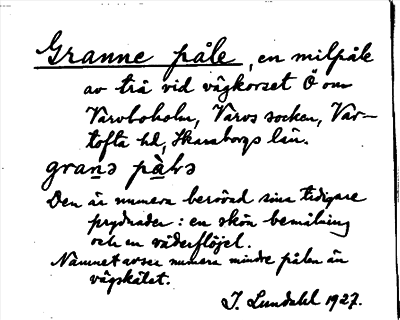 Granne påle, en milpåle
av trä vid vägkorset Ö om
Varvboholm, Varvs socken, Var-
tofta hd, Skaraborgs län.
granə pàlə
Den är numera berövad sina tidigare
prydnader: en skön bemålning
och en väderflöjel.
Namnet avser numera mindre pålen än
vägskälet.
I. Lundahl 1927.